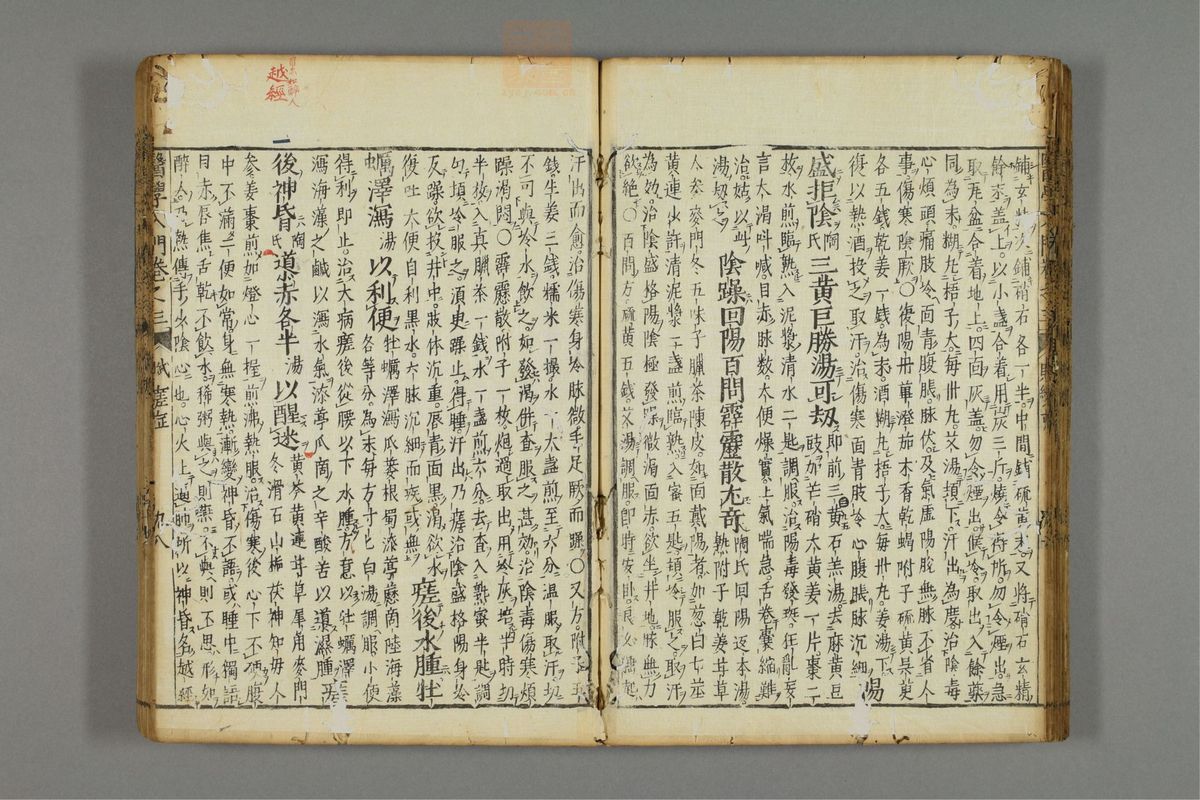 鋪玄精次鋪硝石各一半中間鋪硫黃末又將硝石玄精
餘末盖上以小盞合着用炭三斤煅令得所勿令煙出急
取瓦盆合着地上四面灰盖勿令煙出候冷取出入餘藥
同為末糊丸梧子大每卅丸艾湯頓下汗出為度治陰毒
心煩頭痛肢冷面青腹脹脉伏及氣虛陽脫無脉不省人
事傷寒陰厥〇復陽丹蓽澄茄木香乾蝎附子硫黃吳茱
各五錢乾姜一錢為末酒糊丸梧子大每卅丸姜湯下
復以熱酒投之取汗治傷寒面青肢冷心腹脹脉沉細 陽
盛拒陰陶氏三黃巨勝湯可刼即前三黃石羔湯去麻黃豆
豉加芒硝大黃姜一片棗二
枚水煎臨熟入泥漿清水二匙調服治陽毒發斑狂亂妄
言大渴呌喊目赤脉數大便燥實上氣喘急舌卷囊縮難
治姑以此
湯刼之 陰躁回陽百問霹靂散尤奇陶氏回陽返本湯
熟附子乾姜甘草
人參麥門冬五味子臘茶陳皮如面戴陽者加葱白七莖
黃連少許清泥漿一盞煎臨熟入蜜五匙頓冷服之取汗
為效治陰盛格陽陰極發躁微渴面赤欲坐井地脉無力
欲絕〇百問方硫黃五錢艾湯調服即時安卧良久
汗出而愈治傷寒身冷脉微手足厥而躁〇又方附子
錢生姜三錢糯米一撮水一大盞煎至六分溫服取汗
不可與冷水飲之如發渴倂查服之甚效治陰毒傷寒煩
躁渴悶〇霹靂散附子一枚炮過取出用冷灰培半時切
半枚入真臘茶一錢水一盞煎六分去查入熟蜜半匙調
勻頓冷服之須臾躁止得睡汗出乃瘥治陰盛格陽身冷
反躁欲投井中肢体沉重唇青面黑渴欲水
復吐大便自利黑水六脉沉細而疾或無 瘥後水腫牡
蠣澤瀉湯以利便牡蠣澤瀉瓜蔞根蜀漆葶藶商陸海藻
各等分為末每方寸匕白湯調服小便
得利即止治大病瘥後從腰以下水腫方意以牡蠣澤
瀉海藻之鹹以瀉水氣漆葶瓜商之辛酸苦以導濕腫
後神昏陶氏導赤各半湯以醒迷黃芩黃連甘草犀角麥門
冬滑石山梔茯神知母人
參姜棗煎加燈心一握煎沸熱服治傷寒後心下不硬腹
中不滿二便如常身無寒熱漸變神昏不語或睡中獨語
目赤唇焦舌乾不飲水稀粥與之則嚥不與則不思形如
醉人乃熱傳手少陰心也心火上逼肺所以神昏名越經
醫學入門卷之三
越經